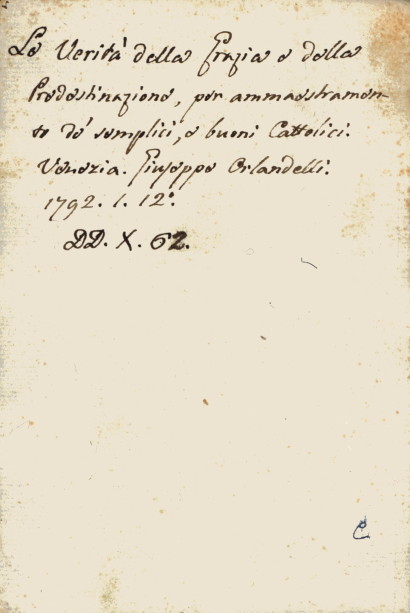 Le Verità della Grazia e della
Predestinazione, per ammaestramen-
to de' semplici, e buoni Cattolici.
Venezia. Giuseppe Orlandelli.
1792. 1. 12º.
DD. X. 62.
C